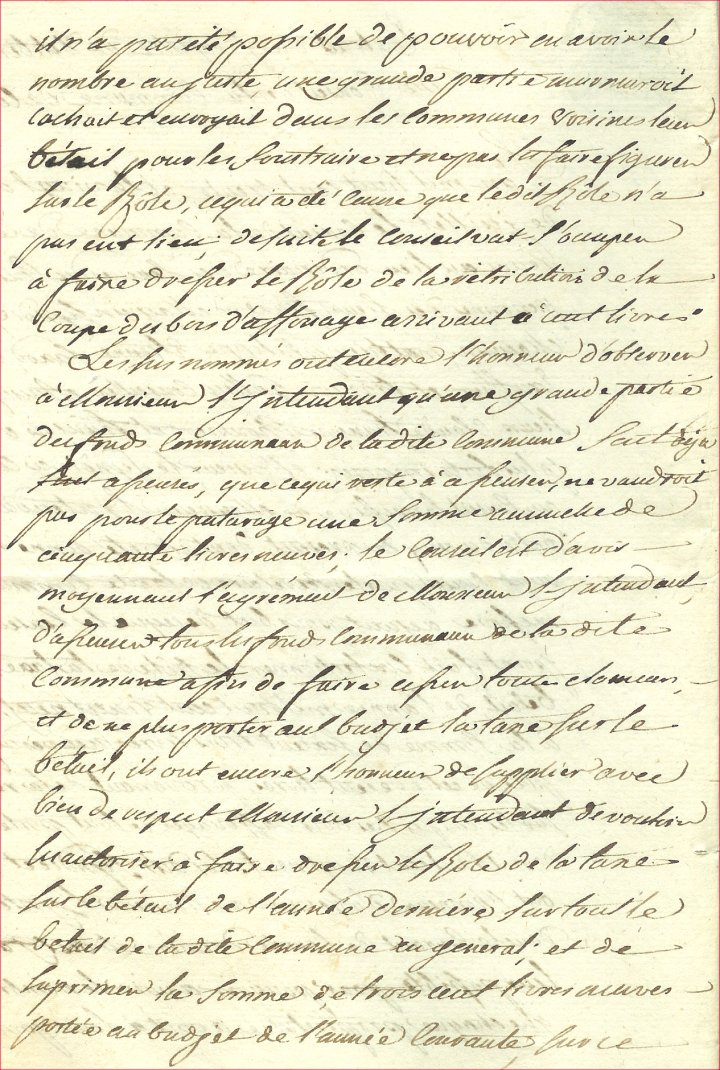 il n'a pas été possible de pouvoir en avoir le
nombre au juste, une grande partie murmuroit
cachait et envoyait dans les Communes voisines leur
bétail pour les soustraire et ne pas les faire figurer
sur le Rôle, ce qui a été Cause que le dit Rôle n'a
pas eut lieu; de suite le Conseil vat s'occuper
à faire dresser le Rôle de la rétribution de la
Coupe des bois d'affouage arrivant à cent livres.
Les sus nommés ont encore l'honneur d'observer
à Monsieur l'Intendant qu'une grande partie
des fonds Communeaux de la dite Commune sont déja
afreurés, que ce qui reste à afreuser, ne vaudroit
pas pour le paturage une somme annuelle de
cinquante livres neuves. le Conseil est d'avis
moyennant l'agrément de Monsieur l'Intendant,
d'afreuser tous les fonds Communeaux de la dite
Commune afin de faire cesser toute clameurs,
et de ne plus porter au budjet la taxe sur le
bétail, ils ont encore l'honneur de supplier avec
bien de respect Monsieur l'Intendant de vouloir
les autoriser à faire dresser le Role de la taxe
sur le bétail de l'année dernière sur tout le
betail de la dite Commune en general; et de
suprimer la Somme de trois cent livres neuves
portée au budjet de l'année Courante, sur ce